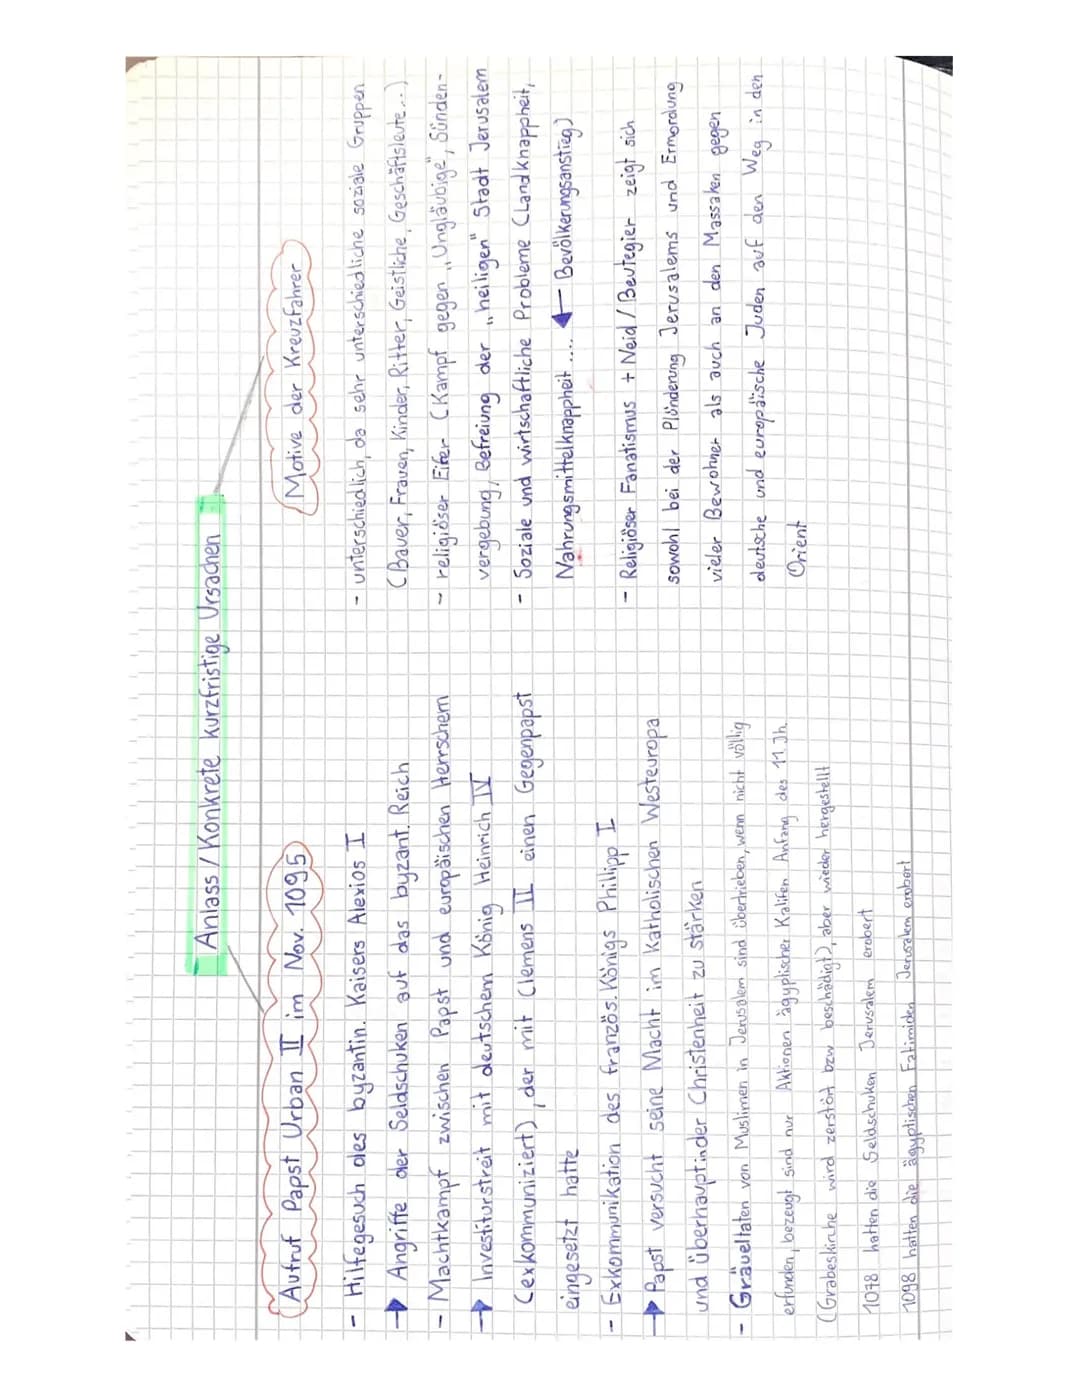 Anlass / Konkrete kurzfristige Ursachen
Aufruf Papst Urban II im Nov. 1095
- Hilfegesuch des byzantin. Kaisers Alexios I
→ Angriffe der Seldschuken auf das byzant. Reich
- Machtkampf zwischen Papst und europäischen Herrschern
→ Investiturstreit mit deutschem König Heinrich IV
(exkommuniziert), der mit Clemens II einen Gegenpapst
eingesetzt hatte
- Exkommunikation des französ. Königs Phillipp I
→ Papst versucht seine Macht im Katholischen Westeuropa
und überhaupt in der Christenheit zu stärken
- Gräueltaten von Muslimen in Jerusalem sind übertrieben, wenn nicht völlig
erfunden, bezeugt sind nur Aktionen ägyptischer Kalifen Anfang des 11. Jh.
(Grabeskirche wird zerstört bzw beschädigt), aber wieder hergestellt
1078 hatten die Seldschuken Jerusalem erobert
1098 hatten die ägyptischen Fatimiden Jerusalem erobert
Motive der Kreuzfahrer
- unterschiedlich, da sehr unterschiedliche soziale Gruppen
(Bauer, Frauen, Kinder, Ritter, Geistliche, Geschäftsleute...)
- religiöser Eifer (Kampf gegen „Ungläubige", Sünden-
vergebung, Befreiung der „heiligen" Stadt Jerusalem
- Soziale und wirtschaftliche Probleme (Landknappheit,
Nahrungsmittelknappheit .... ← Bevölkerungsanstieg)
- Religiöser Fanatismus + Neid / Beutegier zeigt sich
sowohl bei der Plünderung Jerusalems und Ermordung
vieler Bewohner als auch an den Massaken gegen
deutsche und europäische Juden auf den Weg in den
Orient